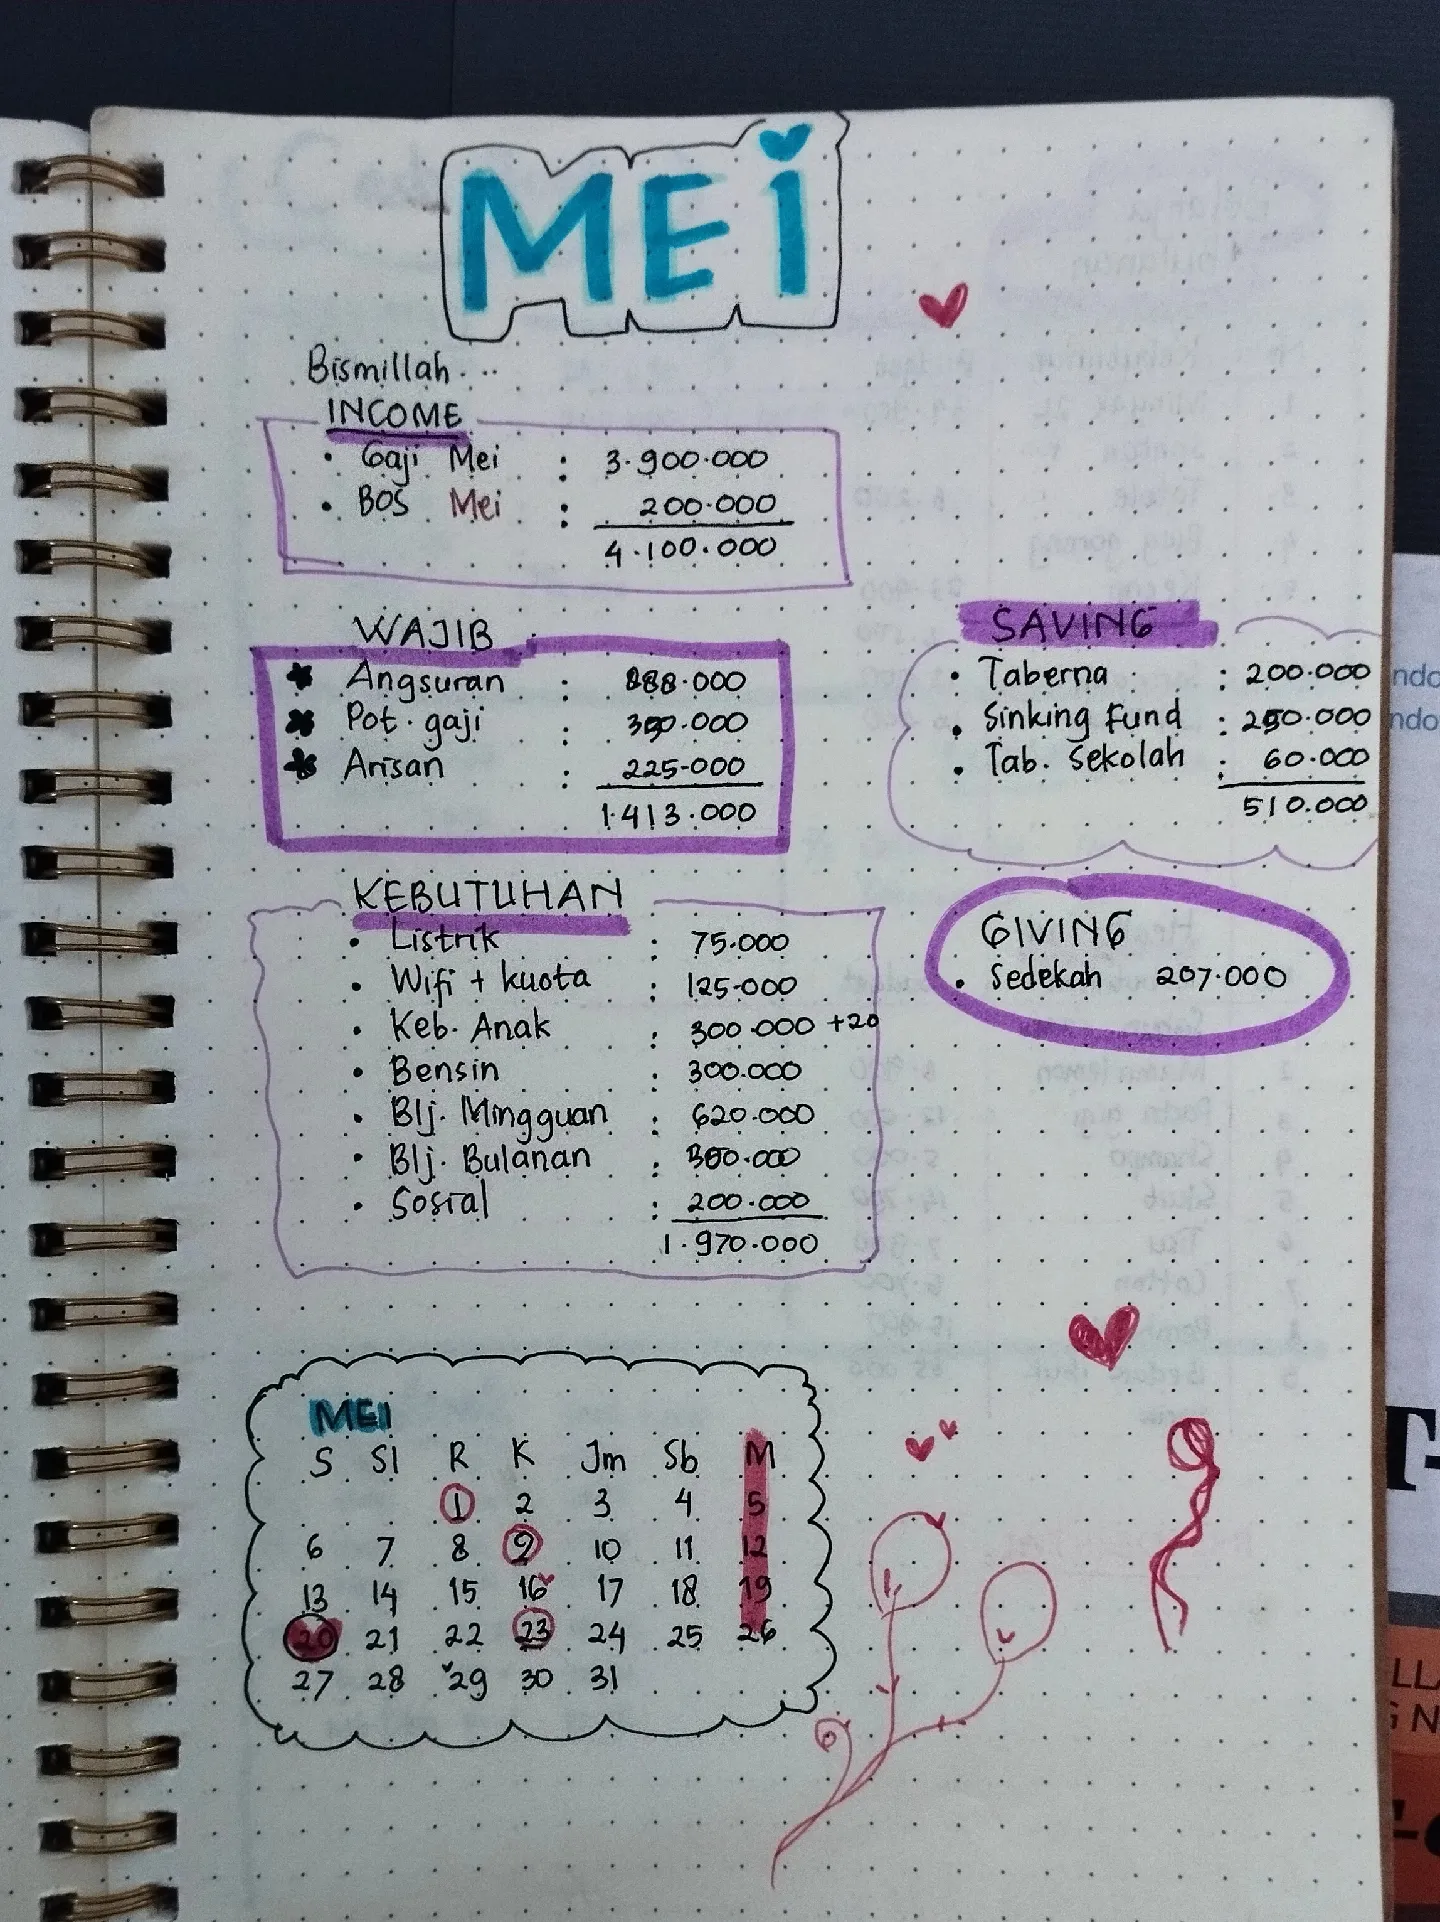 MEI
Bismillah...
INCOME
• Gaji Mei : 3.900.000
• BOS Mei : 200.000
4.100.000
WAJIB
Angsuran : 888.000
Pot. gaji : 300.000
Arisan : 225.000
1.413.000
SAVING
• Taberna : 200.000
• Sinking Fund : 250.000
• Tab. Sekolah : 60.000
510.000
KEBUTUHAN
• Listrik : 75.000
• Wifi + kuota : 125.000
• Keb. Anak : 300.000 +20
• Bensin : 300.000
• Blj. Mingguan : 620.000
• Blj. Bulanan : 300.000
• Sosial : 200.000
1.970.000
GIVING
• Sedekah 207.000
MEI
S Sl R K Jm Sb M
1 2 3 4 5
6 7 8 9 10 11 12
13 14 15 16 17 18 19
20 21 22 23 24 25 26
27 28 29 30 31